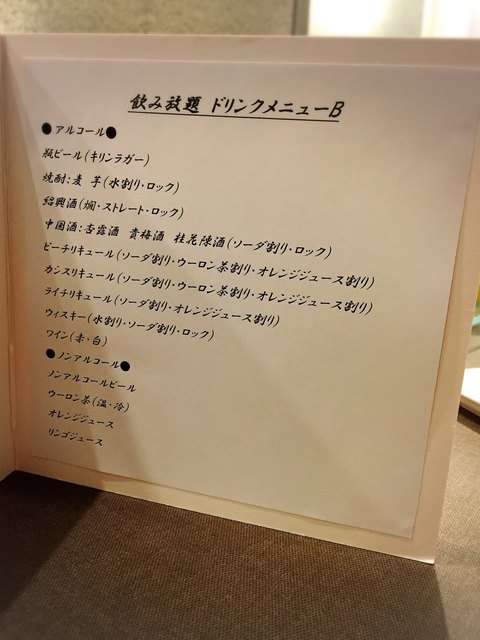 飲み放題 ドリンクメニューB
●アルコール●
瓶ビール(キリンラガー)
焼酎:麦 芋(水割り・ロック)
紹興酒(燗・ストレート・ロック)
中国酒:杏露酒 貴梅酒 桂花陳酒(ソーダ割り・ロック)
ピーチリキュール(ソーダ割り・ウーロン茶割り・オレンジジュース割り)
カシスリキュール(ソーダ割り・ウーロン茶割り・オレンジジュース割り)
ライチリキュール(ソーダ割り・オレンジジュース割り)
ウィスキー(水割り・ソーダ割り・ロック)
ワイン(赤・白)
●ノンアルコール●
ノンアルコールビール
ウーロン茶(温・冷)
オレンジジュース
リンゴジュース